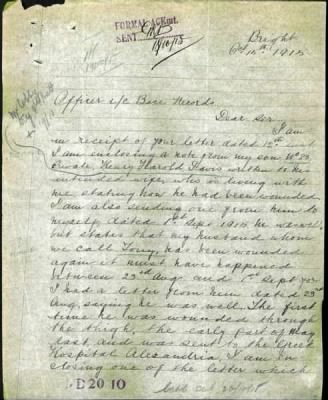 FORMAL ACKmt.
SENT
19/10/15
Bright
Oct 15th 1915
Officer i/c Base Records
Dear Sir
I am
in receipt of your letter dated 12th
I am enclosing a note from my son No
Private Henry Harold Davis written to his
intended wife, who is living with
me stating how he had been wounded.
I am also sending one from him to
myself dated 1st Sept 1915 he was well
but states that my husband whom
we call Tony, had been wounded
again it must have happened
between 23rd Aug and 1st Sept for
I had a letter from him dated 23rd
Aug, saying he was well. The first
time he was wounded through
the thigh, the early part of May
last, and was sent to the Greek
Hospital Alexandria, I am en
closing one of the letter which
D 20 10